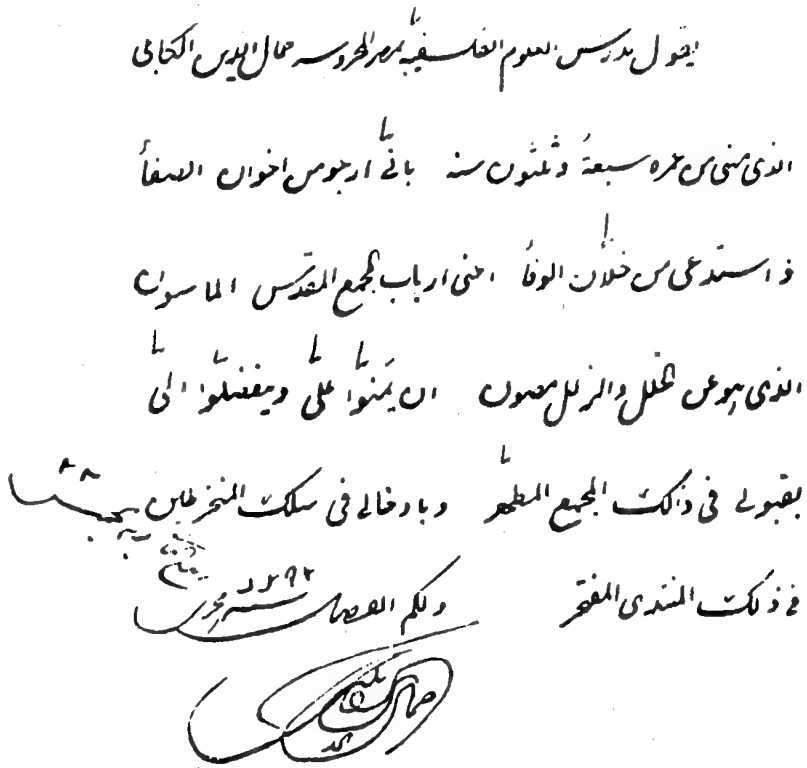 يقول مدرس العلوم الفلسفية بمصر المحروسه جمال الدين الكابلى
الذى مضى من عمره سبعة وثلثون سنه بانى ارجو من اخوان الصفا
و استدعى من خلان الوفا اعنى ارباب المجمع المقدس الماسون
الذى هو عن الخلل والزلل مصون ان يمنوا على ويتفضلوا الى
بقبولى فى ذالك المجمع المطهر وبادخالى فى سلك المنخرطين
فى ذلك المنتدى المفتخر ولكم الفضل
١٢٩٢
جمال الدين